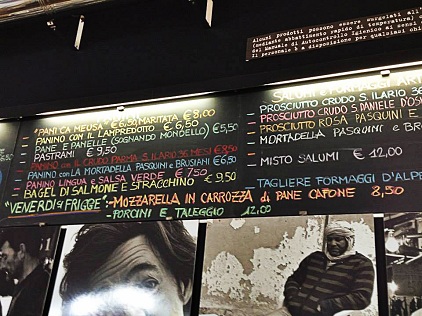 Alcuni prodotti possono essere surgelati all'
(mediante abbattimento rapido di temperatura)
del Manuale di Autocontrollo Igienico ai sensi
Il personale è a disposizione per qualsiasi
- "PANI CA MEUSA" € 6,50, MARITATA € 8,00
- PANINO CON IL LAMPREDOTTO € 6,50
- PANE E PANELLE (SOGNANDO MONDELLO) € 5,50
- PASTRAMI € 9,50
- PANINO CON IL CRUDO PARMA S. ILARIO 36 MESI € 8,50
- PANINO CON LA MORTADELLA PASQUINI E BRUSIANI € 6,50
- PANINO LINGUA E SALSA VERDE € 7,50
- BAGEL DI SALMONE E STRACCHINO € 9,50
"VENERDÌ SI FRIGGE": - MOZZARELLA IN CARROZZA di PANE CAFONE 8,50
- PORCINI E TALEGGIO 12,00
- PROSCIUTTO CRUDO S. ILARIO 36
- PROSCIUTTO CRUDO S DANIELE D'OS
- PROSCIUTTO ROSA PASQUINI E
- MORTADELLA PASQUINI e BRU
- MISTO SALUMI € 12,00
- TAGLIERE FORMAGGI D'ALPE